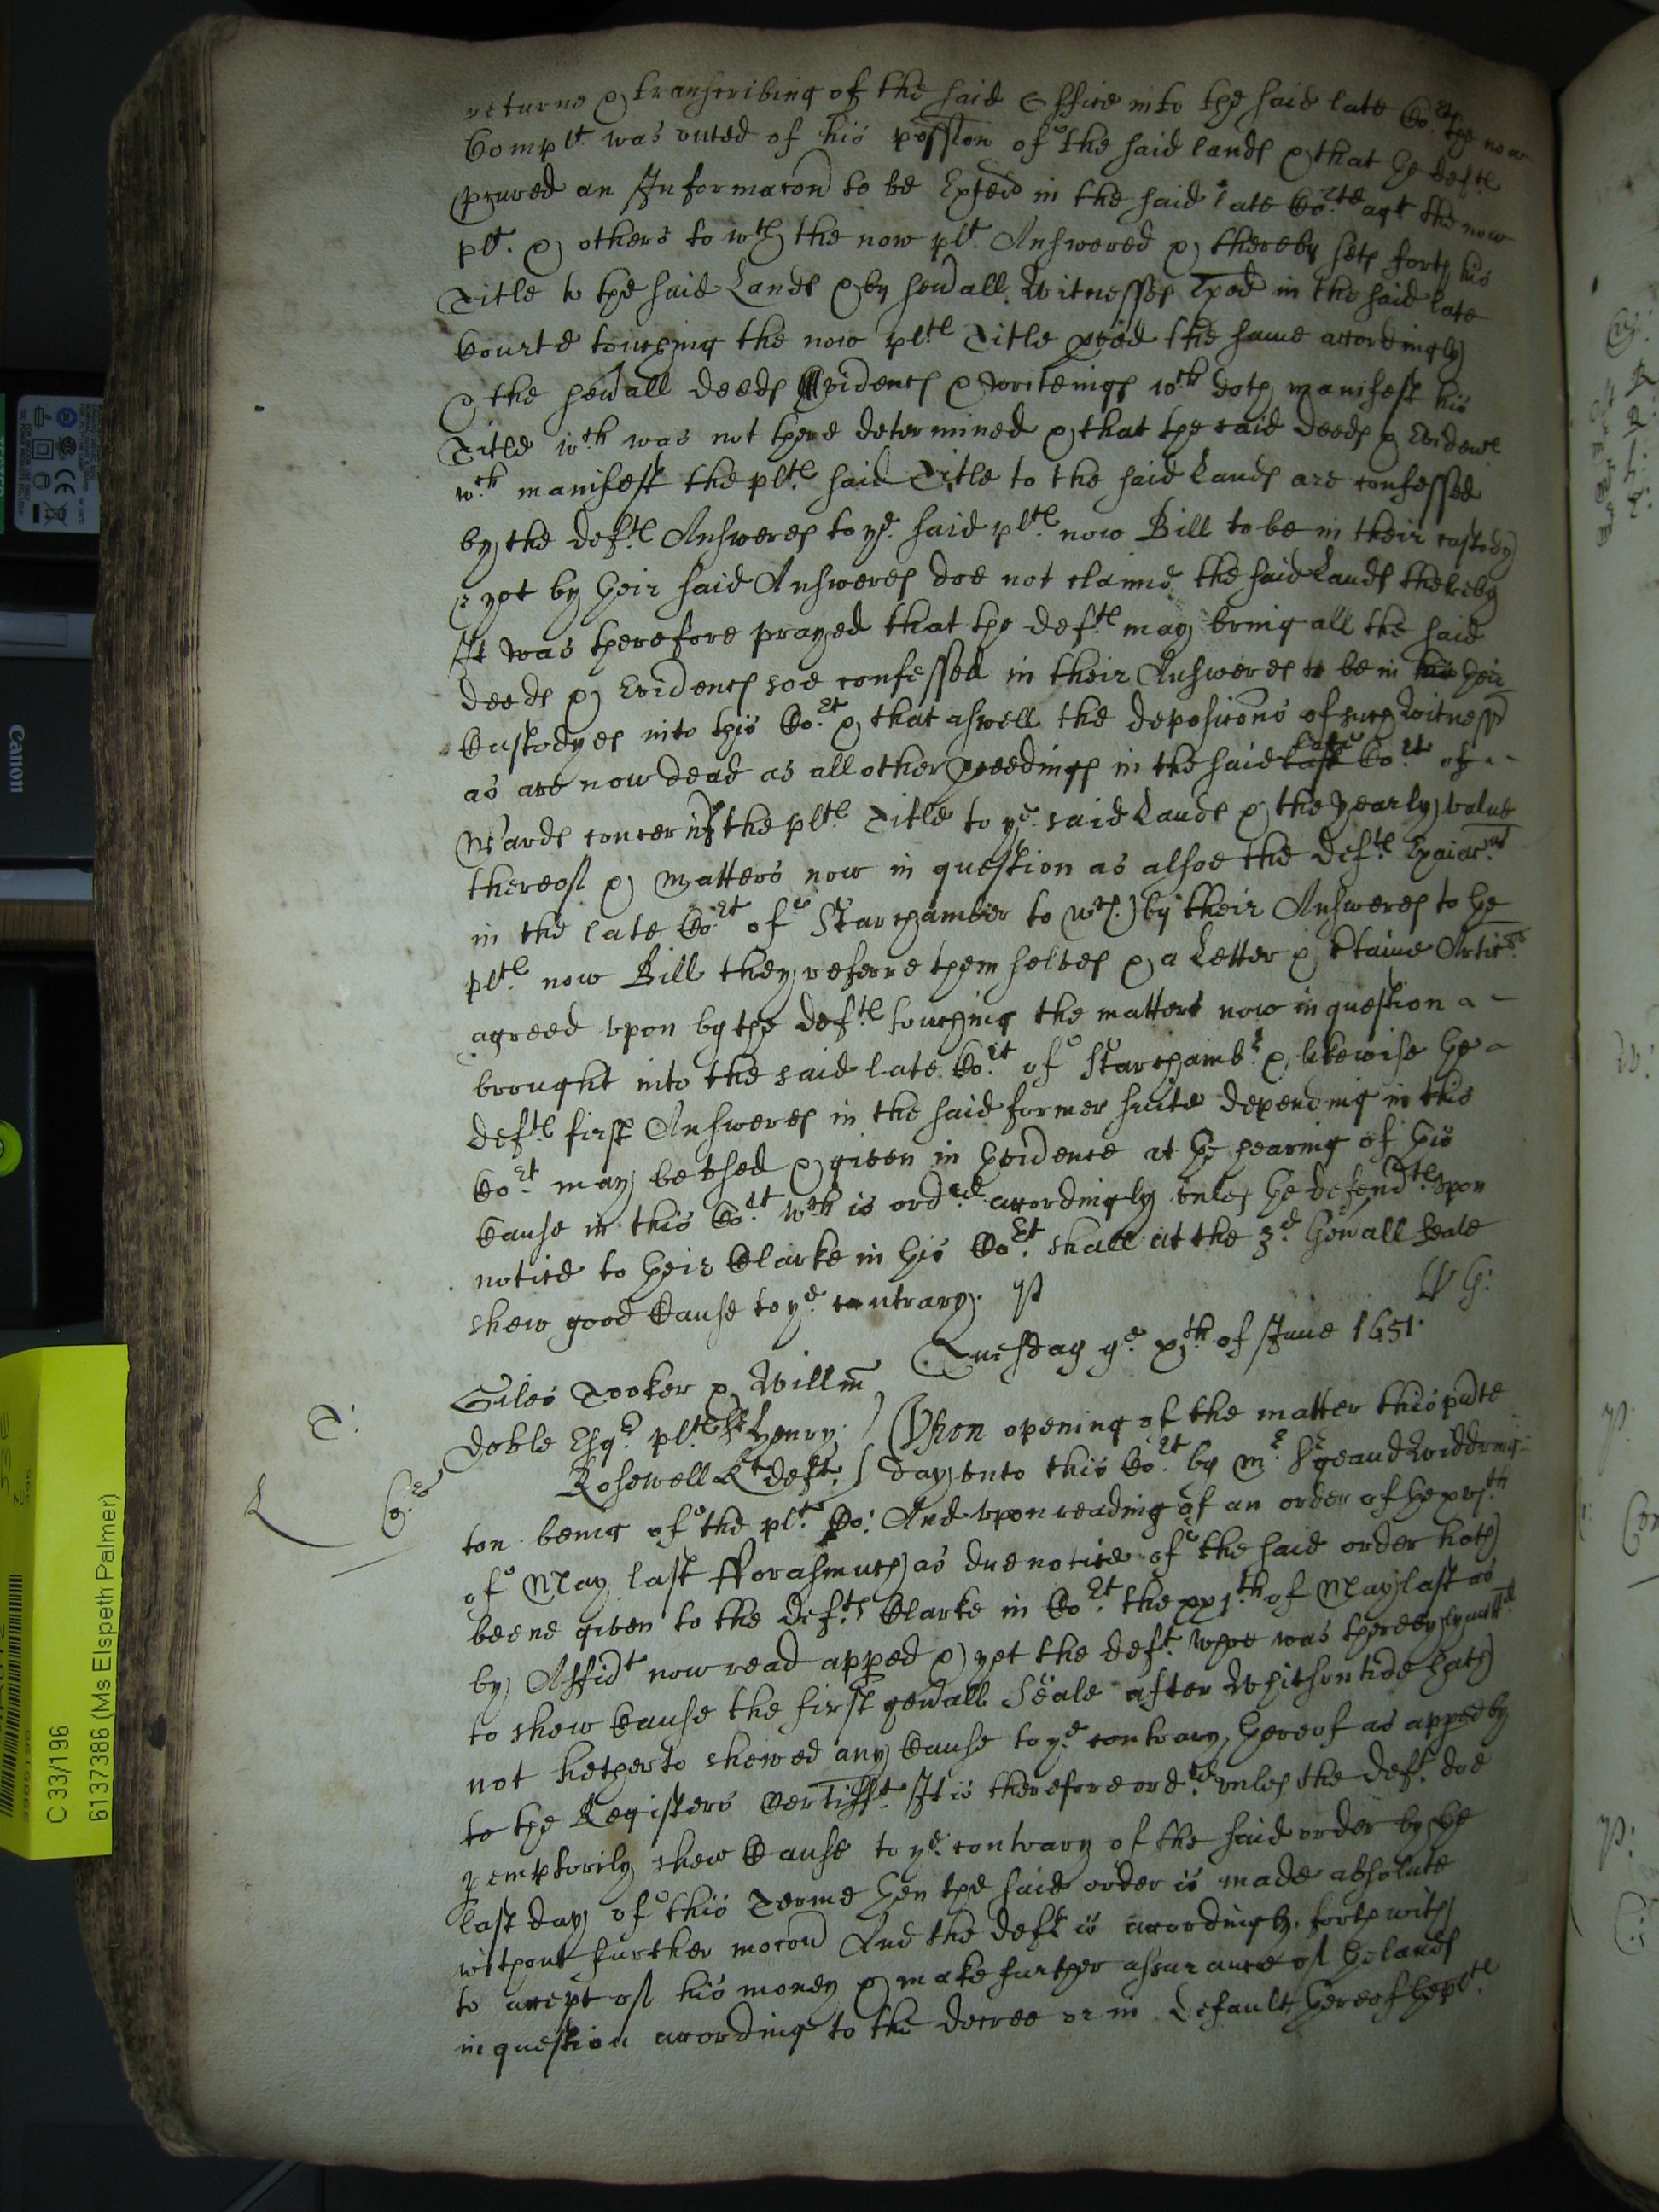 returne & transcribing of the said Office into the said late Co:rt the now
Compl:t was outed of his possion of the said lands & that the def:ts
pcured an Informacon to be Exhited in the said late Co:rte ag:t the now
pl:t & others to w:ch the now pl:t Answered & thereby seth forth his
Title to the said Lands & by seuall Witnesses Exed in the said late
Courte touching the now pl:ts Title pved the same accordingly
& the seuall deeds Evidencs & writeings w:ch doth manifest his
Title w:ch was not there determined & that the said deeds & Evidencs
w:ch manifest the pl:ts said Title to the said Lands are confessed
by the def:ts Answeres to ye said pl:ts now Bill to be in their custody
& yet by their said Answeres doe not clayme the said Lands thereby
It was therefore prayed that the def:ts may bring all the said
deeds & Evidencs soe confessed in their Answeres to be in their
Custodyes into this Co:rt & that aswell the deposicons of such Witnesses
as are now dead as all other pceedings in the said late Co:rt of
Wards concerning the pl:ts Title to ye said Lands & the yearly value
thereof & matters now in question as alsoe the def:ts
in the late Co:rt of Starchamber to w:ch by their Answeres to the
pl:ts now Bill they referre themselves & a Letter & ctaine Artic:les
agreed vpon by the def:ts touching the matters now in question
brought into the said late Co:rt of Starchamb:r & likewise the
def:ts first Answeres in the said former suite depending in this
Co:rt may be vsed & given in Evidence at the hearing of this
Cause in this Co:rt w:ch is ord:red accordingly vnles the defend:ts vpon
notice to their Clarke in this Co:rt shall at the 3:d Genall Seale
shew good Cause to ye contrary.
Tuesday ye x:th of June 1651.
T:
L
Giles Tooker & Willm
Doble Esq:r pl:ts Sr Henry
Rosewell K:t def:t
Vpon opening of the matter this pnte
day vnto this Co:rt by M:r Widdring
ton being of the pl:ts Co: And vpon reading of an order of the xvj:th
of May last fforasmuch as due notice of the said order hath
beene given to the def:ts Clarke in Co:rt the xxj:th of May last as
by Affid:t now read apped & yet the def:t who was thereby
to shew Cause the first genall Seale after Whitsontide hath
not hetherto shewed any Cause to ye contrary thereof as apped by
to the Registers Certifft It is therefore ord:red vnles the def:t doe
pemptorily shew Cause to ye contrary of the said order by the
last day of this Terme then the said order is made absolute
without further mocon And the def:t is accordingly forthwith
to accept of his money & make further assurance of the lands
in question according to the decree or in default thereof the pl:ts
C 33/196
6137386 (Ms Elspeth Palmer)
Canon